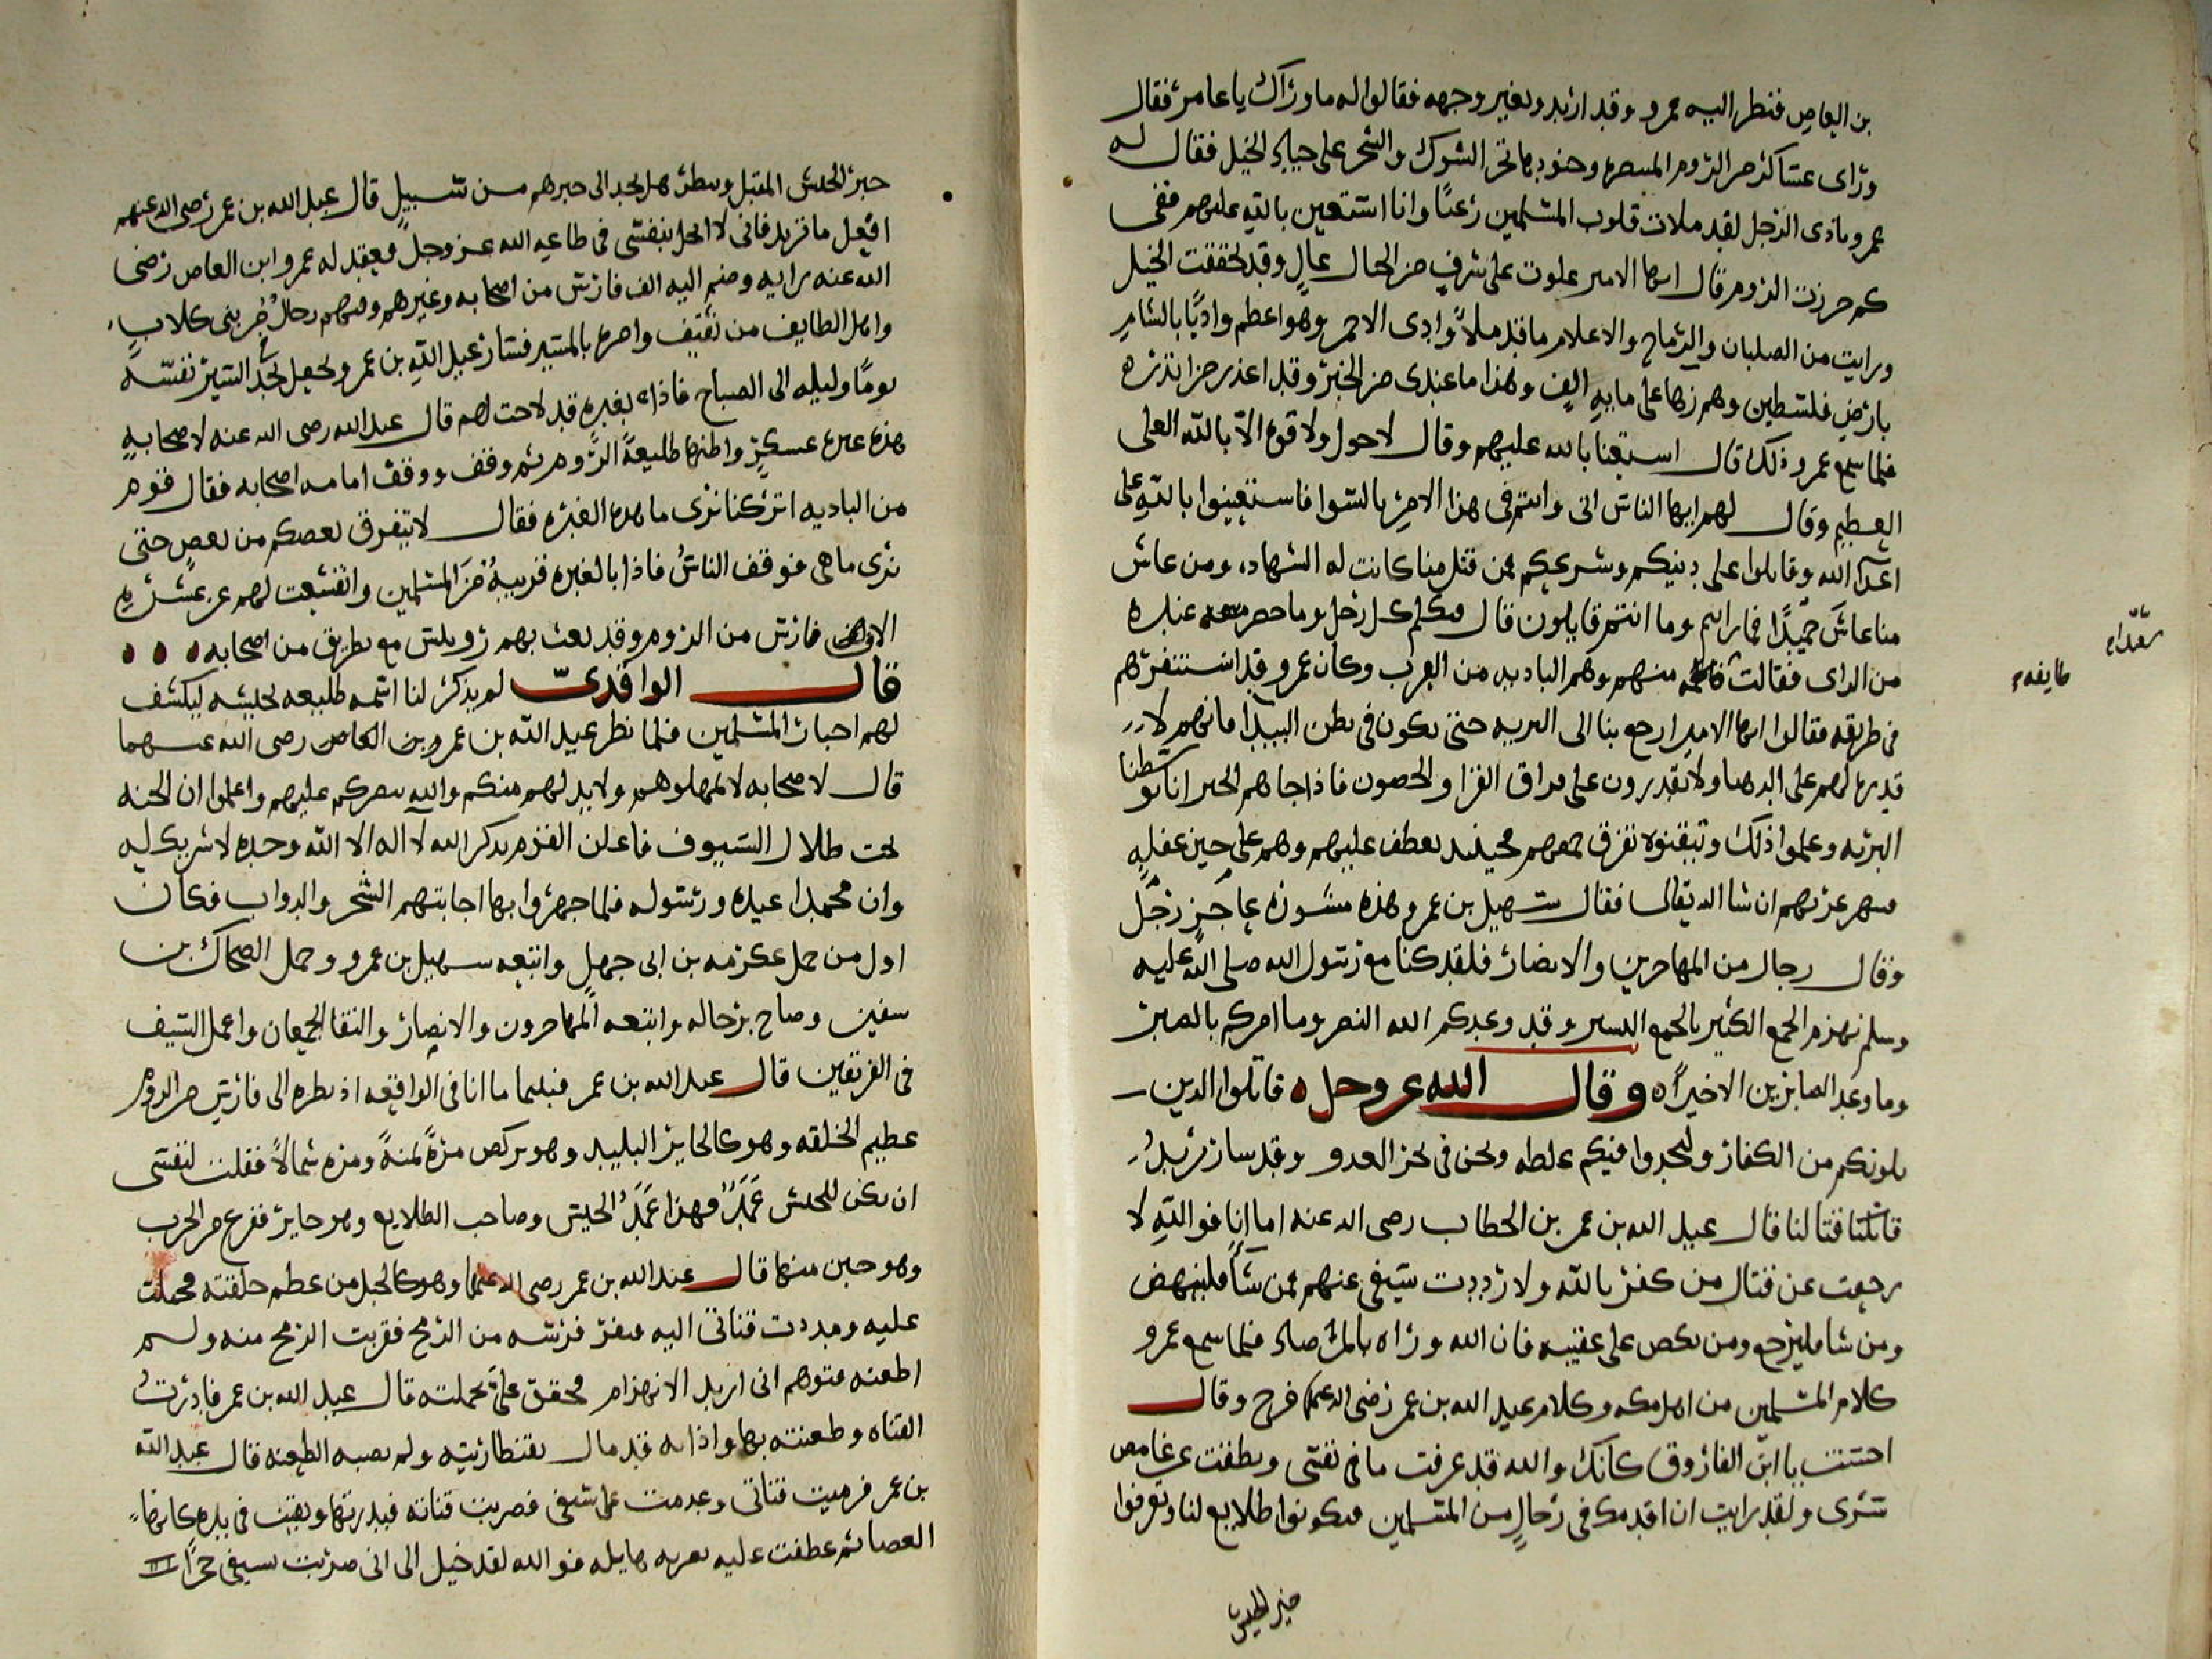 بن العاص فنظر اليه عمرو وقد اربد وتغير وجهه فقالوا له ما وراك يا عامر فقال
وراى عساكر من الروم المتنصره وجنودها تجر الشوك والشجر على جياد الخيل فقال له
عمرو ماذى الرجل لقد ملات قلوب المسلمين رعبًا وانا استعين بالله عليهم ففى
كم حرزت الروم قال ايها الامير علوت على شرف من الجبال عالٍ وقد تحققت الخيل
ورايت من الصلبان والرماح والاعلام ما قد ملأ وادى الاحمر وهو اعظم واديًا بالشام
بارض فلسطين وهم زها على مايه الف وهذا ما عندى من الخبر وقد اعذر من انذره
فلما سمع عمرو ذلك قال استعنا بالله عليهم وقال لا حول ولا قوه الا بالله العلى
العظيم وقال لهم ايها الناس انى وانتم فى هذا الامر بالسوا فاستعينوا بالله على
اعدآ الله وقاتلوا على دينكم وشرعكم فمن قتل منا كانت له الشهاده ومن عاش
منا عاش حميدًا فما رايتم وما انتم قايلون قال فتكلم كل رجل وما حضر معه عنده
من الراى فقالت طايفه منهم وهم الباديه من العرب وكان عمرو قد استنفرهم
فى طريقه فقالوا ايها الامير ارجع بنا الى البريه حتى نكون فى بطن البيدا فانهم لا
قدره لهم على الدهنا ولا يقدرون على فراق القرا والحصون فاذا جاهم الخبر اننا توسطنا
البريه وعلموا ذلك وتيقنوه تفرق جمعهم فحينيذ نعطف عليهم وهم على حين غفله
فنهزمهم ان شا الله تعالى فقال سهيل بن عمرو هذه مشوره عاجز رجل
وقال رجال من المهاجرين والانصار فلقد كنا مع رسول الله صلى الله عليه
وسلم نهزم الجمع الكثير بالجمع اليسير وقد وعدكم الله النصر وما امركم بالصبر
وما وعد الصابرين الا خيرًا ه وقال الله عز وجل ه قاتلوا الذين
يلونكم من الكفار وليجدوا فيكم غلظه ونحن فى نحر العدو وقد سار يريد
قاتلنا قتالنا قال عبد الله بن عمر بن الخطاب رضى الله عنه اما انا فوالله لا
رجعت عن قتال من كفر بالله ولا رددت سيفى عنهم فمن شآ فلينهض
ومن شا فليرجع ومن نكص على عقبيه فان الله وراه بالمرصاد فلما سمع عمرو
كلام المسلمين من اهل مكه وكلام عبد الله بن عمر رضى الله عنهما فرح وقال
احسنت يا ابن الفاروق كانك والله قد عرفت ما فى نفسى ونطقت عن غامض
سرى ولقد رايت ان اقدمك فى رجالٍ من المسلمين فتكونوا طلايع لنا وتعرفوا
خبر الجيش
طايفه
خبر الجيش المقبل وتنظر هل نجد الى خبرهم من سبيل قال عبد الله بن عمر رضى الله عنهم
افعل ما تريد فانى لا ابخل بنفسى فى طاعه الله عز وجل فعقد له عمرو ابن العاص رضى
الله عنه رايه وضم اليه الف فارس من اصحابه وغيرهم وفيهم رجال من بنى كلاب
واهل الطايف من ثقيف وامره بالمسير فسار عبد الله بن عمر وجعل يجد السير نفسه
يومًا وليله الى الصباح فاذا بغبره قد لاحت لهم قال عبد الله رضى الله عنه لاصحابه
هذه غبره عسكر واظنها طليعة الروم ثم وقف ووقف امامه اصحابه فقال قوم
من الباديه اتركنا نرى ما هذه الغبره فقال لا يتفرق بعضكم من بعض حتى
نرى ما هى فوقف الناس فاذا بالغبره قريبه من المسلمين وانقشعت لهم عن عشره
الاف فارس من الروم وقد بعث بهم روبيس مع بطريق من اصحابه
قال الواقدى لم يذكر لنا اسمه طليعه لجيشه ليكشف
لهم اخبار المسلمين فلما نظر عبد الله بن عمرو بن العاص رضى الله عنهما
قال لاصحابه لا تمهلوهم ولا بد لهم منكم والله ينصركم عليهم واعلموا ان الجنه
تحت ظلال السيوف فاعلن القوم بذكر الله لا اله الا الله وحده لا شريك له
وان محمدا عبده ورسوله فلما جهروا بها اجابتهم الشجر والدواب فكان
اول من حمل عكرمه بن ابى جهل واتبعه سهيل بن عمرو وحمل الضحاك بن
سفين وصاح برجاله واتبعه المهاجرون والانصار والتقا الجمعان واعمل السيف
فى الفريقين قال عبد الله بن عمر فبينما انا فى الواقعه اذ نظره الى فارس من الروم
عظيم الخلقه وهو كالحاير البليد وهو يركض مرة يمنة ومره شمالًا فقلت لنفسى
ان يكن للجيش عمد فهذا عمد الجيش وصاحب الطلايع وهو حاير ففزع من الحرب
وهو جبن منها قال عبد الله بن عمر رضى الله عنهما وهو كالجبل من عظم خلقته فحملت
عليه ومددت قناتى اليه فنفر فرسه من الرمح فقربت الرمح منه ولم
اطعنه فتوهم انى اريد الانهزام فحقق على بحملته قال عبد الله بن عمر فادرت
القناه وطعنته بها واذا به قد مال بقنطاريته ولم تصبه الطعنه قال عبد الله
بن عمر فرميت قناتى وعمدت على سيفى فضربت قناته فبدرتها وبقيت فى يده كانها
العصا ثم عطفت عليه بضربه هايله فوالله لقد خيل الى انى ضربت بسيفى حجرًا